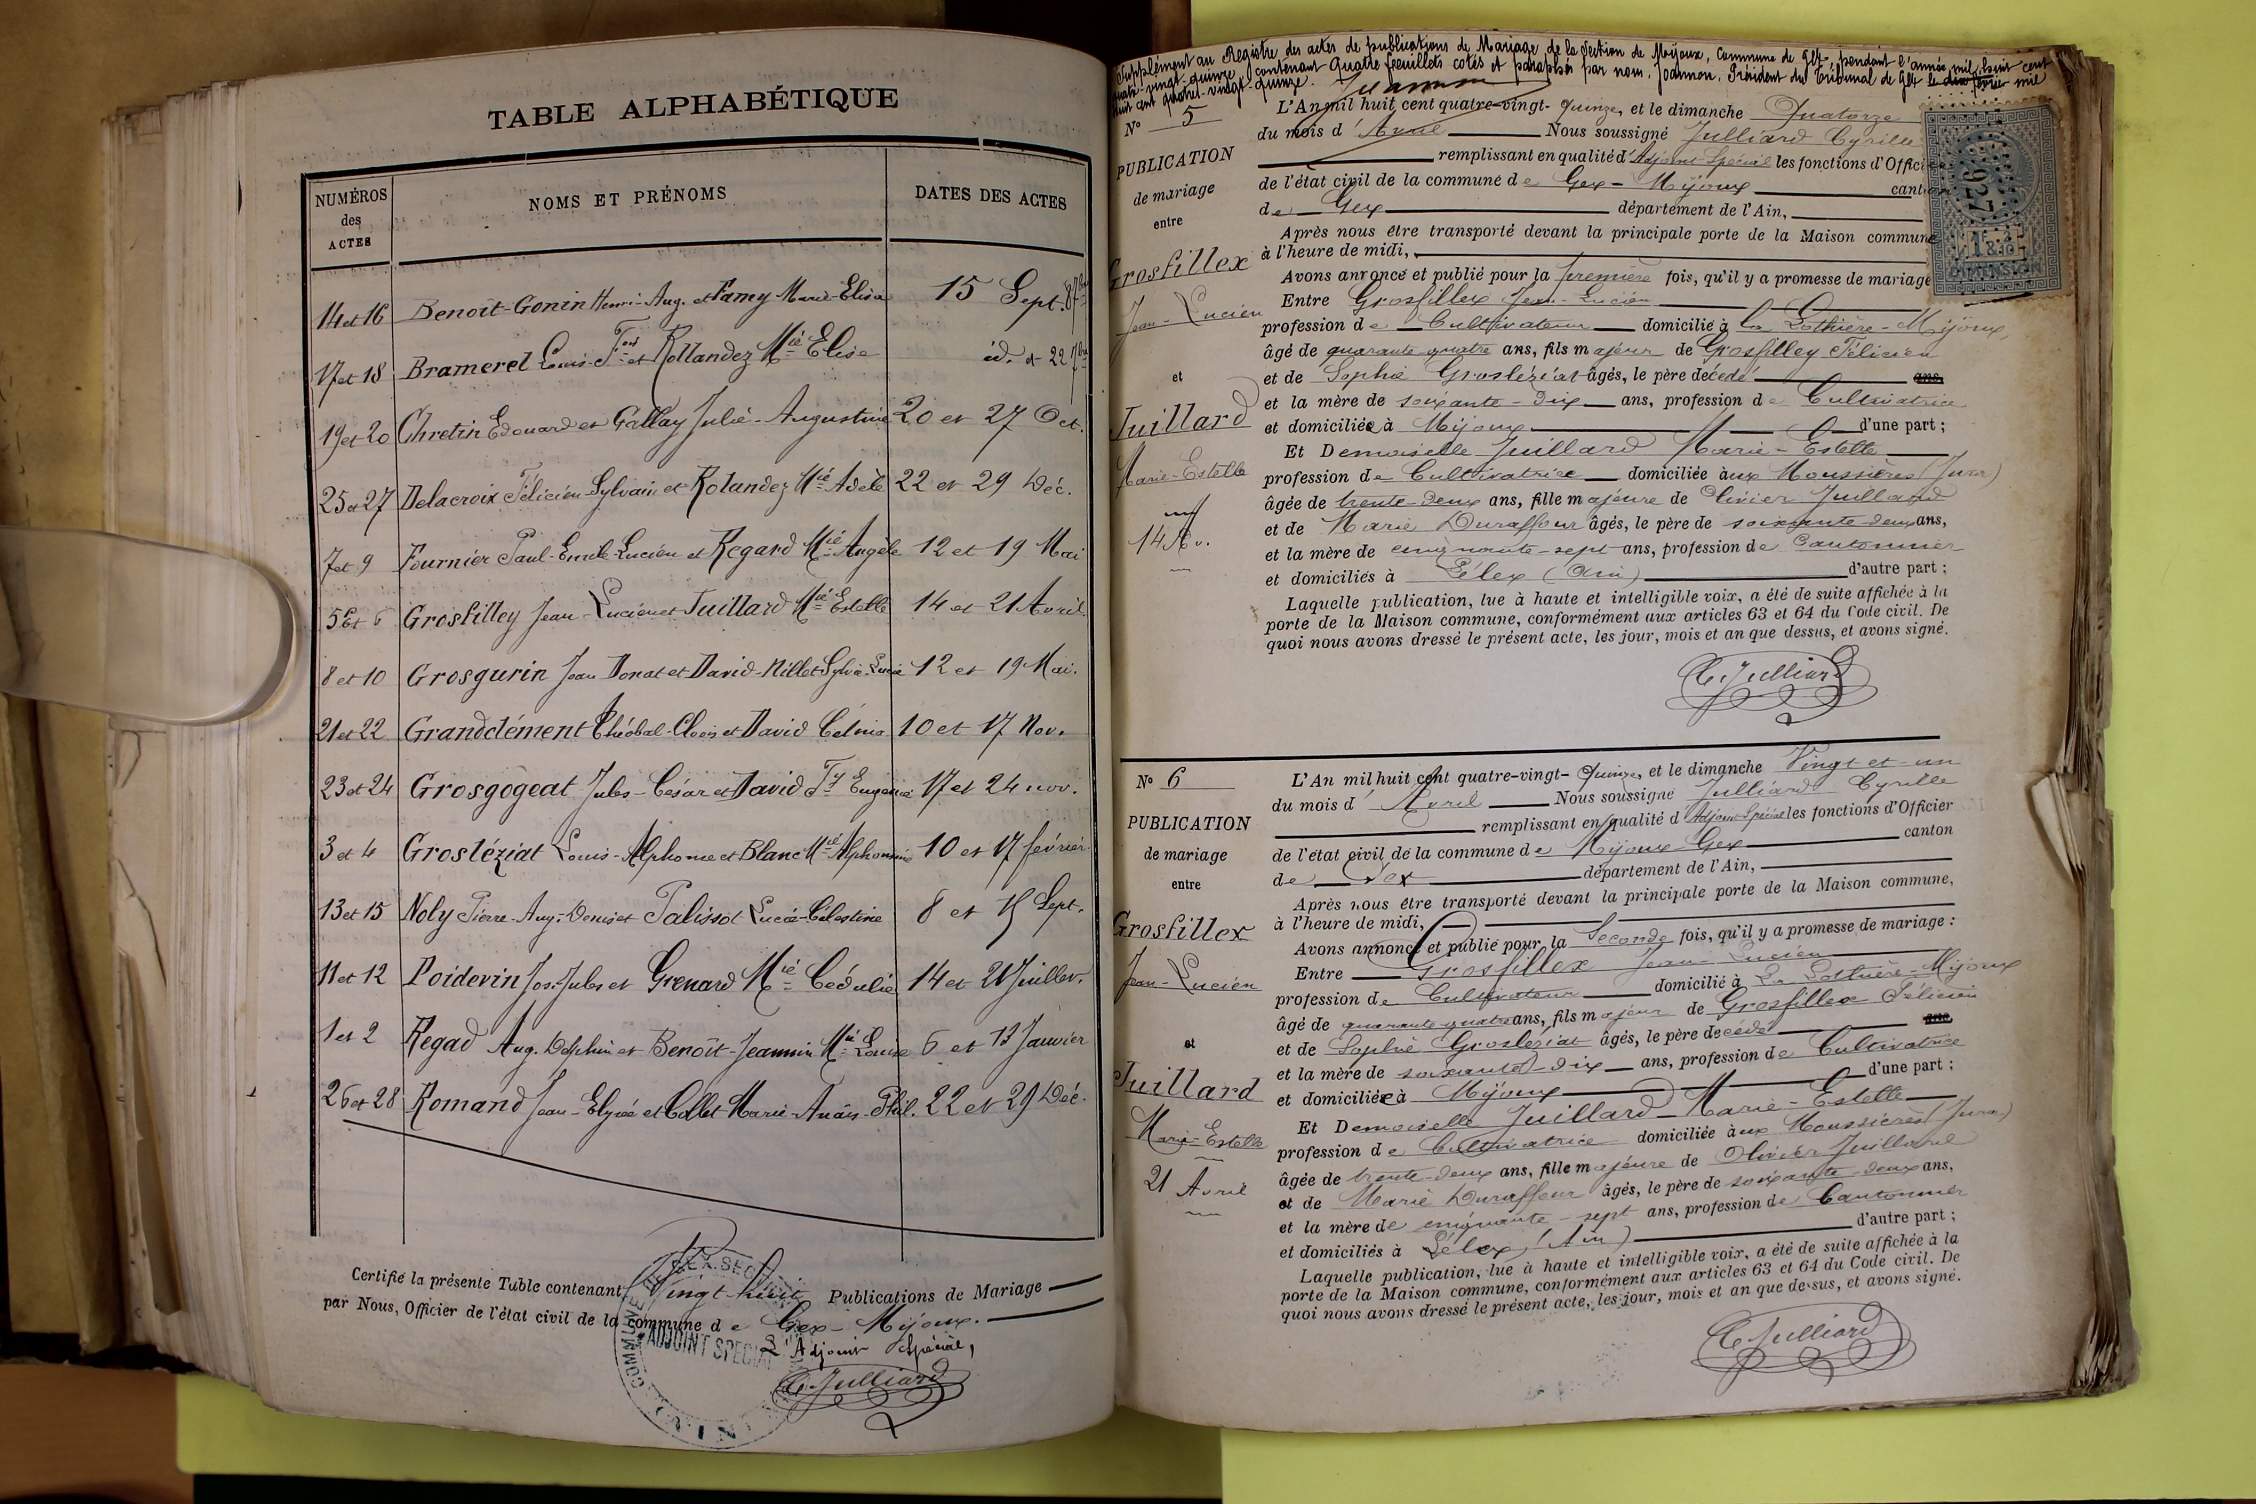 TABLE ALPHABÉTIQUE
NUMÉROS des ACTES
NOMS ET PRÉNOMS
DATES DES ACTES
14 et 16 Benoit-Gonin Henri-Aug. et Famy Marie-Elisa 15 Sept.
17 et 18 Bramerel Louis et Rollandez Mie Elise id. et 22 7bre
19 et 20 Chretin Edouard et Gallay Julie-Augustine 20 et 27 Oct.
25 et 27 Delacroix Félicien-Sylvain et Rolandez Mie Adèle 22 et 29 Déc.
7 et 9 Fournier Paul-Emile-Lucien et Regard Mie Angèle 12 et 19 Mai
5 et 6 Grosfilley Jean-Lucien et Juillard Mie Estelle 14 et 21 Avril
8 et 10 Grosgurin Jean Donat et David-Nillet Sylvie-Lucie 12 et 19 Mai.
21 et 22 Grandclément Théobal-Clovis et David Célina 10 et 17 Nov.
23 et 24 Grosgogeat Jules-César et David Eugénie 17 et 24 nov.
3 et 4 Grosléziat Louis-Alphonse et Blanc Mie Alphonsine 10 et 17 février
13 et 15 Noly Pierre-Aug.-Denis et Palissot Lucie-Célestine 8 et 15 Sept.
11 et 12 Poidevin Jos.-Jules et Grenard Mie Cédulie 14 et 21 Juillet.
1 et 2 Regad Aug. Delphin et Benoît-Jeannin Mie Louise 6 et 13 Janvier
26 et 28 Romand Jean-Elysée et Collet Marie-Anaïs-Phil. 22 et 29 Déc.
Certifié la présente Table contenant Vingt-huit Publications de Mariage
par Nous, Officier de l'état civil de la commune de Gex-Mijoux.
L'Adjoint Spécial,
ADJOINT SPECIAL
C. Julliard
Supplément au Registre des actes de publications de Mariage de la Section de Mijoux, Commune de Gex, pendant l'année mil huit cent
quatre-vingt-quinze, contenant Quatre feuillets cotés et paraphés par nous, Joannon, Président du Tribunal de Gex le dix février mil
huit cent quatre-vingt-quinze.
Joannon
N° 5
PUBLICATION
de mariage
entre
Grosfillex
Jean-Lucien
et
Juillard
Marie-Estelle
14 Av.
L'An mil huit cent quatre-vingt-quinze, et le dimanche Quatorze
du mois d'Avril Nous soussigné Julliard Cyrille
remplissant en qualité d'Adjoint Spécial les fonctions d'Officier
de l'état civil de la commune de Gex-Mijoux canton
de Gex département de l'Ain,
Après nous être transporté devant la principale porte de la Maison commune
à l'heure de midi,
Avons annoncé et publié pour la première fois, qu'il y a promesse de mariage
Entre Grosfillex Jean-Lucien
profession de Cultivateur domicilié à la Lothière-Mijoux,
âgé de quarante quatre ans, fils majeur de Grosfilley Félicien
et de Sophie Grosléziat âgés, le père décédé ans,
et la mère de soixante-dix ans, profession de Cultivatrice
et domiciliée à Mijoux d'une part ;
Et Demoiselle Juillard Marie-Estelle
profession de Cultivatrice domiciliée aux Moussières (Jura)
âgée de trente-deux ans, fille majeure de Olivier Juillard
et de Marie Duraffour âgés, le père de soixante deux ans,
et la mère de cinquante-sept ans, profession de Cantonnier
et domiciliés à Lélex (Ain) d'autre part ;
Laquelle publication, lue à haute et intelligible voix, a été de suite affichée à la
porte de la Maison commune, conformément aux articles 63 et 64 du Code civil. De
quoi nous avons dressé le présent acte, les jour, mois et an que dessus, et avons signé.
C. Julliard
N° 6
PUBLICATION
de mariage
entre
Grosfillex
Jean-Lucien
et
Juillard
Marie-Estelle
21 Avril
L'An mil huit cent quatre-vingt-quinze, et le dimanche Vingt et un
du mois d'Avril Nous soussigné Julliard Cyrille
remplissant en qualité d'Adjoint Spécial les fonctions d'Officier
de l'état civil de la commune de Mijoux Gex canton
de Gex département de l'Ain,
Après nous être transporté devant la principale porte de la Maison commune,
à l'heure de midi,
Avons annoncé et publié pour la Seconde fois, qu'il y a promesse de mariage :
Entre Grosfillex Jean-Lucien
profession de Cultivateur domicilié à La Lothière-Mijoux
âgé de quarante quatre ans, fils majeur de Grosfillex Félicien
et de Sophie Grosléziat âgés, le père decédé ans,
et la mère de soixante-dix ans, profession de Cultivatrice
et domiciliée à Mijoux d'une part ;
Et Demoiselle Juillard Marie-Estelle
profession de Cultivatrice domiciliée aux Moussières (Jura)
âgée de trente-deux ans, fille majeure de Olivier Juillard
et de Marie Duraffour âgés, le père de soixante-deux ans,
et la mère de cinquante-sept ans, profession de Cantonnier
et domiciliés à Lélex (Ain) d'autre part ;
Laquelle publication, lue à haute et intelligible voix, a été de suite affichée à la
porte de la Maison commune, conformément aux articles 63 et 64 du Code civil. De
quoi nous avons dressé le présent acte, les jour, mois et an que dessus, et avons signé.
C. Julliard
DIMENSION